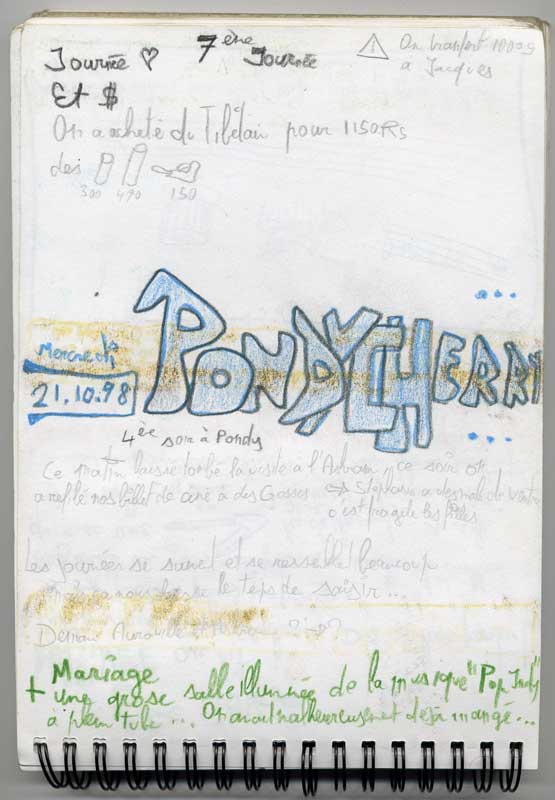 Journée ♡ 7ème Journée
⚠ On transfert 1000g
à Jacques
Et $
On a acheté du Tibétain pour 1150Rs
des
300 490 150
Mercredi
21.10.98
PONDYCHERRY
4ère soir à Pondy
Ce matin laisse tombé la visite à l'Ashram, ce soir on
a refilé nos billet de ciné à des Gosses
→ Stephane a des mal de ventre
c'est fragile les filles
Les journées se suivet et se resseblet beaucoup
mais ça nous laisse le teps de saisir...
Demain Auroville
Mariage
+ une grose salle illuminée de la musique "Pop Indy"
à plein tube... On avait malheureusement déjà mangé...